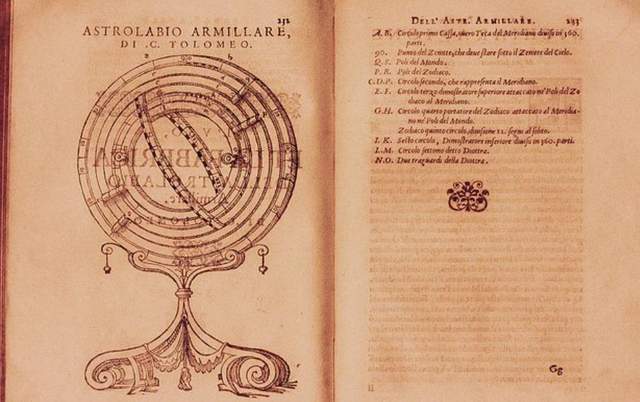 232
ASTROLABIO ARMILLARE,
DI .C. TOLOMEO.
DELL'ASTR. ARMILLARE. 233
A. B. Circolo primo Cassa, overo Teca del Meridiano diviso in 360.
parti.
90. Punto del Zenitte, che deve stare sotto il Zenitte del Cielo.
Q. S. Poli del Mondo.
P. R. Poli del Zodiaco.
C. D.P. Circolo secondo, che rappresenta il Meridiano.
E. F. Circolo terzo dimostratore superiore attaccato ne' Poli del Zo
diaco al Meridiano.
G. H. Circolo quarto portatore del Zodiaco attaccato al Meridia-
no ne' Poli del Mondo.
Zodiaco quinto circolo, divisione 12. segni al solito.
I. K. Sesto circolo, Dimostratore inferiore diviso in 360. parti.
L. M. Circolo settimo detto Diottra.
N. O. Due traguardi della Diottra.
Gg